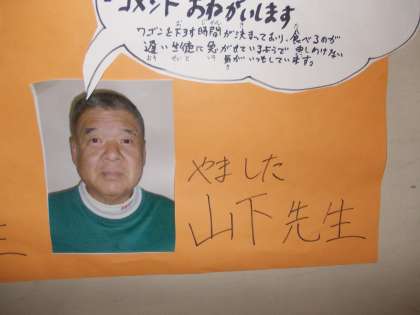 コメント おねがいします
ワゴンを下ろす時間が決まっており、食べるのが
遅い生徒に急がせているようで 申しわけない
気がいつもしています。
やました
山下先生
生